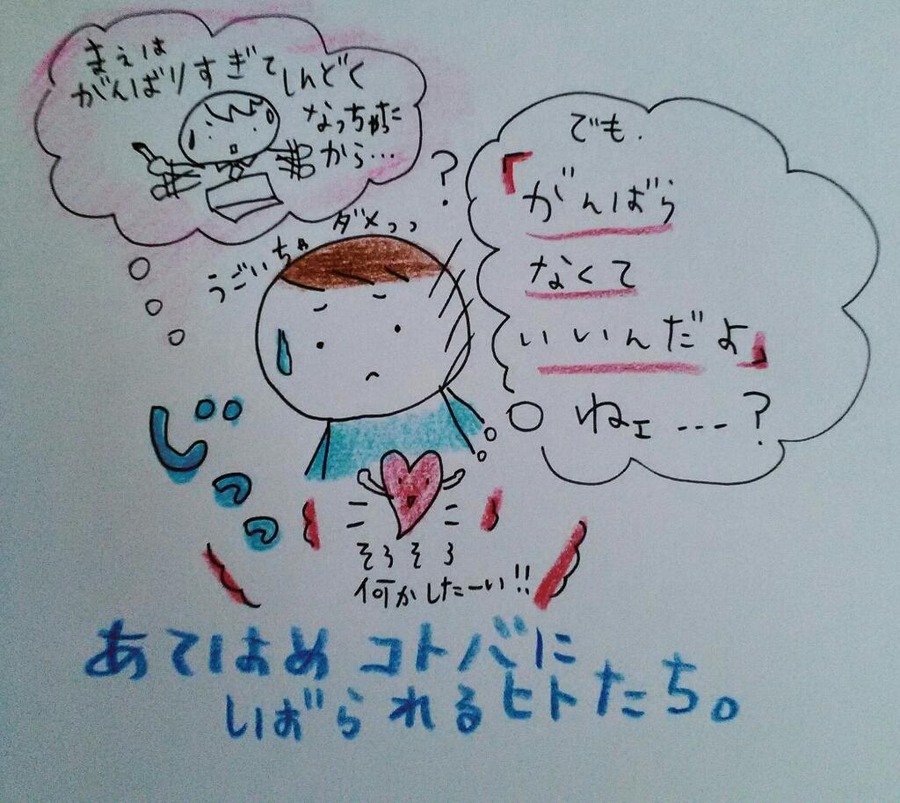 まえは
がんばりすぎてしんどく
なっちゃった
から…
?
うごいちゃ
ダメっっ
でも、
「がんばら
なくて
いいんだよ」
ねェ---?
じーっっ
そろそろ
何かしたーい!!
あてはめコトバに
しばられるヒトたち。